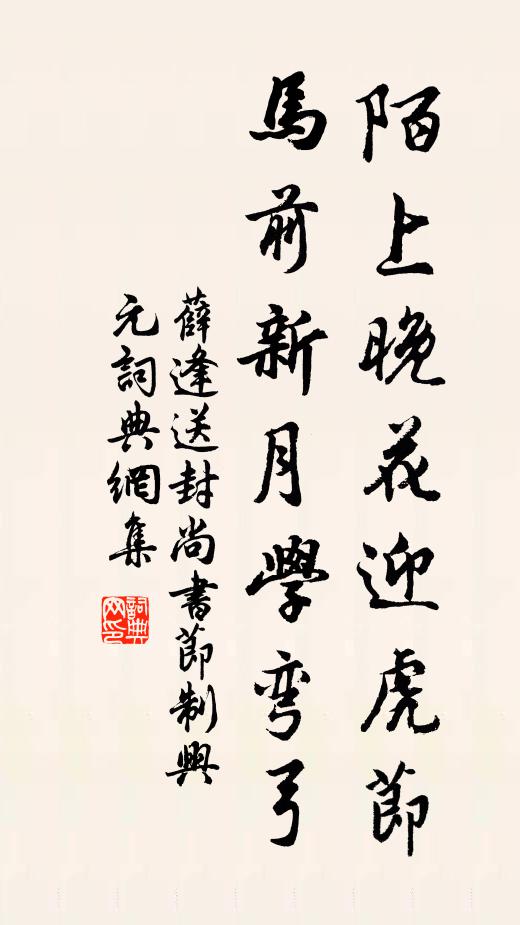 陌上晚花迎虎節
馬前新月學彎弓
薛逢送封尚書節制興
元詞典網集
詞典网印